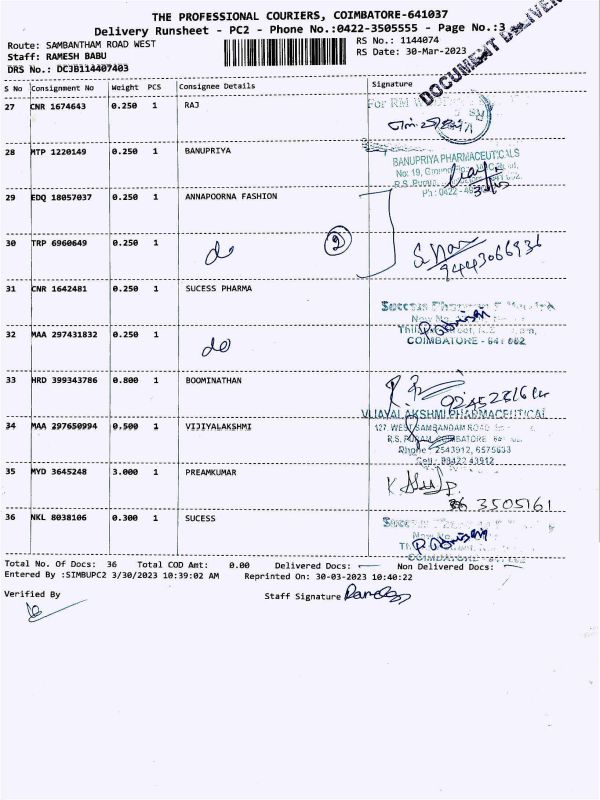 THE PROFESSIONAL COURIERS, COIMBATORE-641037
Delivery Runsheet - PC2 - Phone No.:0422-3505555 - Page No.:3
DOCUMENT DELIVER
Route: SAMBANTHAM ROAD WEST
Staff: RAMESH BABU
DRS No.: DCJB114407403
RS No.: 1144074
RS Date: 30-Mar-2023
S No Consignment No Weight PCS Consignee Details Signature
27 CNR 1674643 0.250 1 RAJ
For RM
28 MTP 1220149 0.250 1 BANUPRIYA
BANUPRIYA PHARMACEUTICALS
No: 19,
R.S.
Ph: 0422 -
29 EDQ 18057037 0.250 1 ANNAPOORNA FASHION
30 TRP 6960649 0.250 1 do
2
9443066936
31 CNR 1642481 0.250 1 SUCESS PHARMA
Success
COIMBATORE - 641 002
32 MAA 297431832 0.250 1 do
33 HRD 399343786 0.800 1 BOOMINATHAN
34 MAA 297650994 0.500 1 VIJIYALAKSHMI
VIJAYALAKSHMI PHARMACEUTICAL
127, WEST SAMBANDAM ROAD
R.S. PURAM, COIMBATORE
Phone : 2543912, 6575633
Cell : 98422 43912
35 MYD 3645248 3.000 1 PREAMKUMAR
3505161
36 NKL 8038106 0.300 1 SUCESS
Total No. Of Docs: 36 Total COD Amt: 0.00 Delivered Docs: Non Delivered Docs:
Entered By :SIMBUPC2 3/30/2023 10:39:02 AM Reprinted On: 30-03-2023 10:40:22
Verified By
Staff Signature